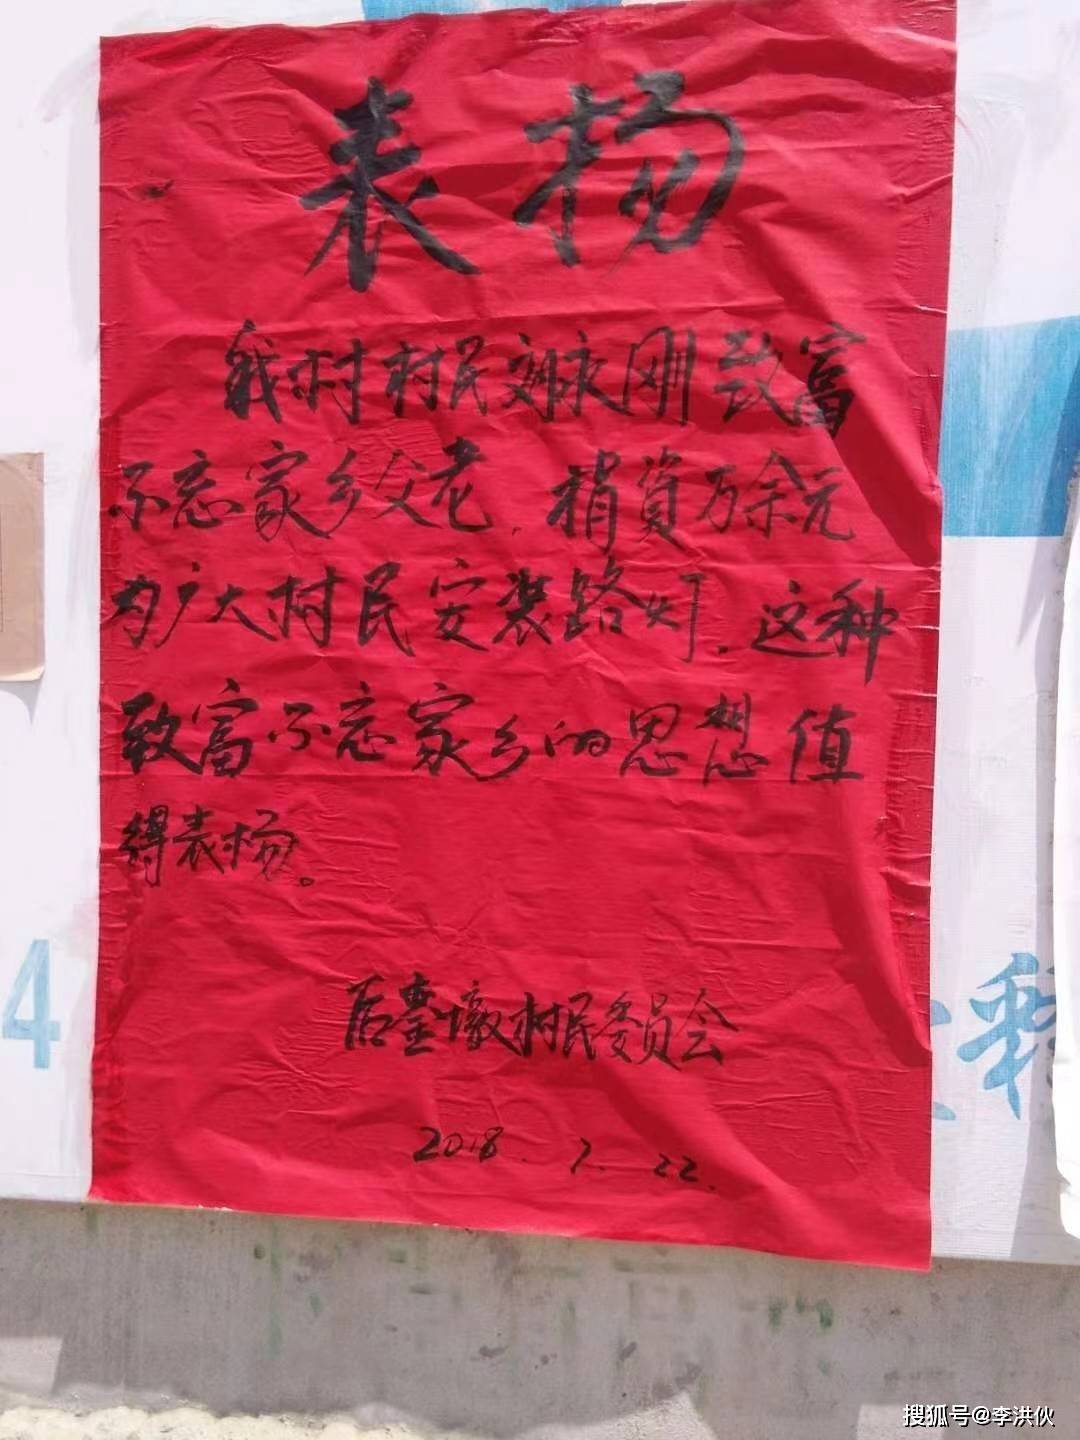 表扬
我村村民刘永刚致富
不忘家乡父老，捐資万余元
为广大村民安装路灯，这种
致富不忘家乡的思想值
得表扬。
后臺墩村民委员会
2018.7.22.
4
搜狐号@李洪伙